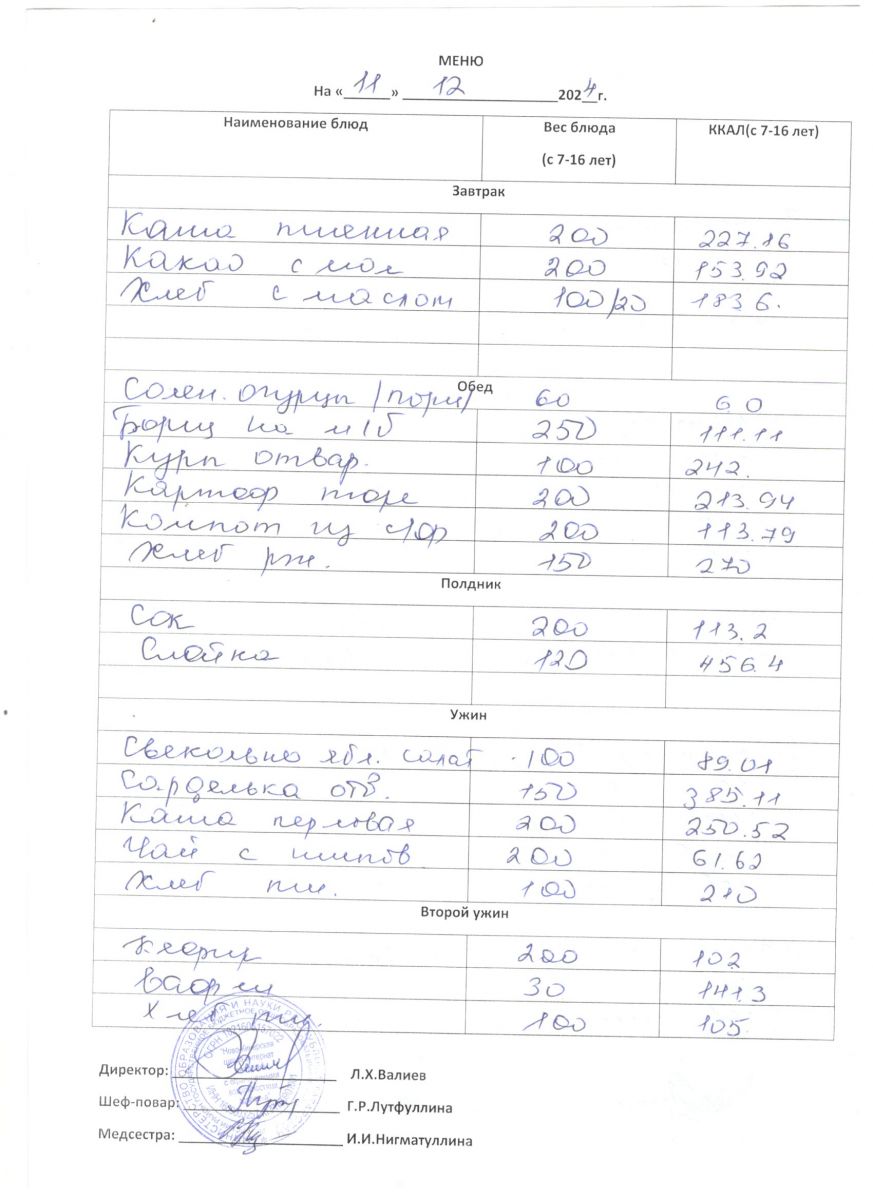 МЕНЮ
На « 11 » 12 2024 г.
Наименование блюд Вес блюда (с 7-16 лет) ККАЛ(с 7-16 лет)
Завтрак
Каша пшенная 200 227.86
Какао с мол 200 153.92
Хлеб с маслом 100/20 183 6.
Обед
Солен. огурцы /порц/ 60 6.0
Борщ на м/б 250 111.11
Куры отвар. 100 242.
Картоф пюре 200 213.94
Компот из с/ф 200 113.79
Хлеб рж. 150 270
Полдник
Сок 200 113.2
Слойка 120 456.4
Ужин
Свекольно ябл. салат 100 89.01
Сарделька отв. 150 385.11
Каша перловая 200 250.52
Чай с шипов 200 61.62
Хлеб пш. 100 210
Второй ужин
Кефир 200 102
Вафли 30 141.3
Хлеб пш. 100 105
Директор: Л.Х.Валиев
Шеф-повар: Г.Р.Лутфуллина
Медсестра: И.И.Нигматуллина